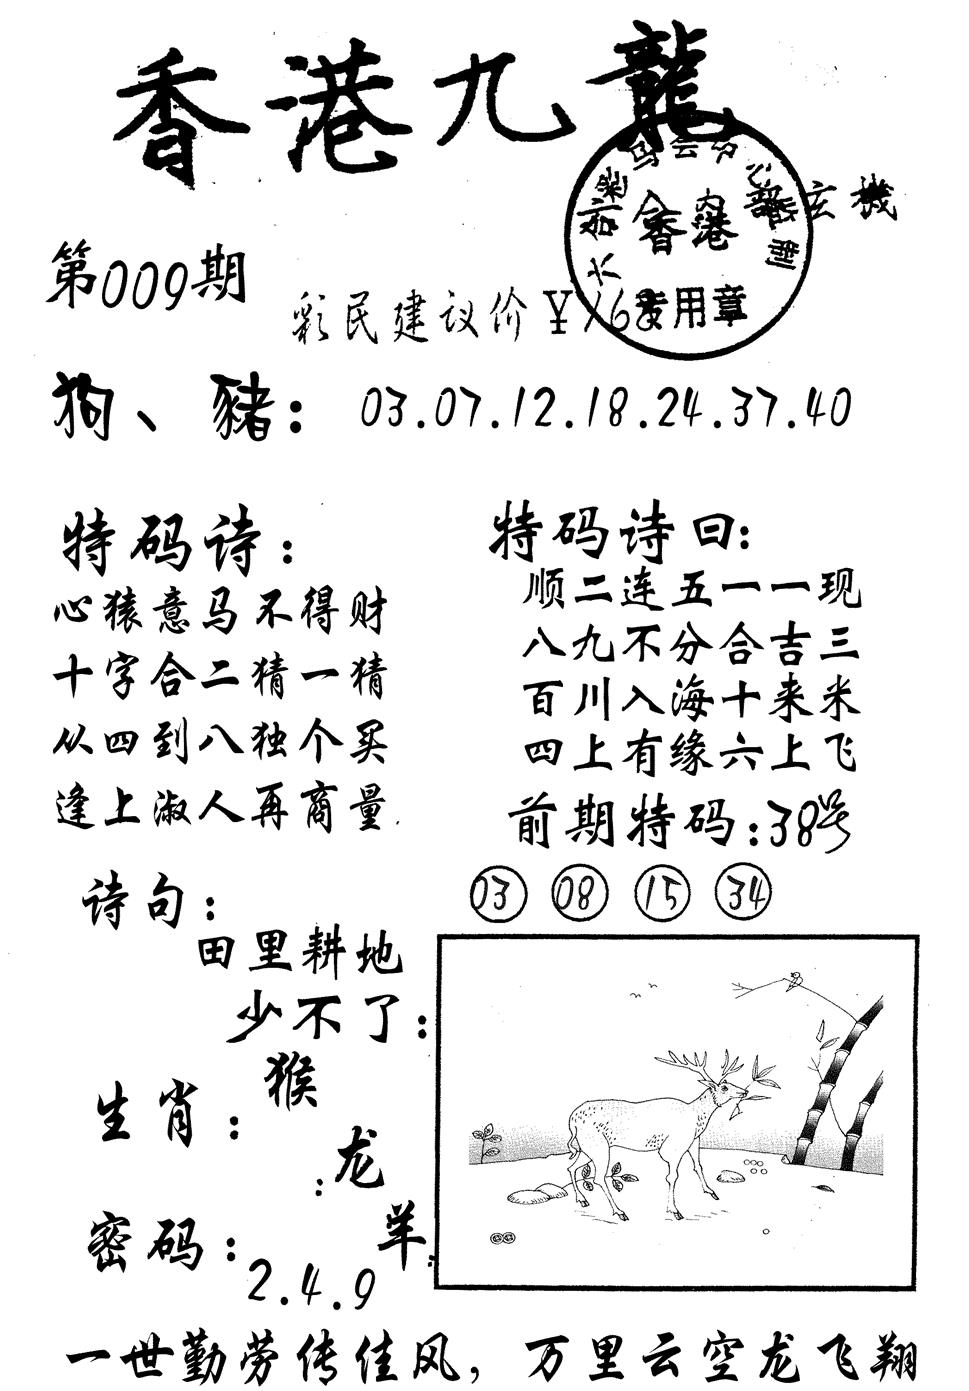 香港九龍
玄機
第009期
香港
专用章
彩民建议价¥168
狗、豬：03.07.12.18.24.37.40
特码诗：
心猿意马不得财
十字合二猜一猜
从四到八独个买
逢上淑人再商量
特码诗曰：
顺二连五一一现
八九不分合吉三
百川入海十来米
四上有缘六上飞
前期特码：38号
03 08 15 34
诗句：
田里耕地
少不了：
生肖：猴
：龙
羊
密码：2.4.9
一世勤劳传佳风，万里云空龙飞翔